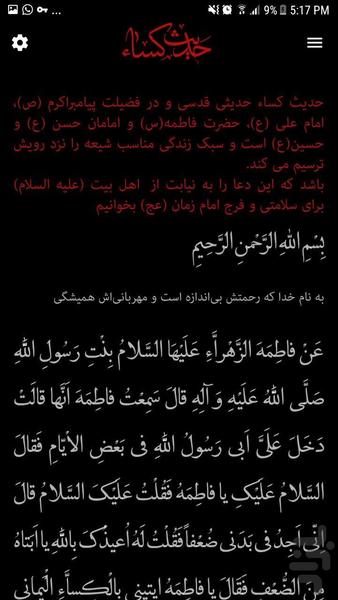 ... 9% 5:17 PM
حدیث کساء
حدیث کساء حدیثی قدسی و در فضیلت پیامبراکرم (ص)،
امام علی (ع)، حضرت فاطمه(س) و امامان حسن (ع) و
حسین(ع) است و سبک زندگی مناسب شیعه را نزد رویش
ترسیم می کند.
باشد که این دعا را به نیابت از اهل بیت (علیه السلام)
برای سلامتی و فرج امام زمان (عج) بخوانیم
بِسْمِ اللهِ الرَّحْمنِ الرَّحیمِ
به نام خدا که رحمتش بی‌اندازه است و مهربانی‌اش همیشگی
عَنْ فاطِمَهَ الزَّهْراَّءِ عَلَیْهَا السَّلامُ بِنْتِ رَسُولِ اللهِ
صَلَّی اللهُ عَلَیْهِ وَ آلِهِ قالَ سَمِعْتُ فاطِمَهَ اَنَّها قالَتْ
دَخَلَ عَلَیَّ اَبی رَسُولُ اللهِ فی بَعْضِ الاَْیّامِ فَقالَ
السَّلامُ عَلَیْکِ یا فاطِمَهُ فَقُلْتُ عَلَیْکَ السَّلامُ قالَ
اِنّی اَجِدُ فی بَدَنی ضُعْفاً فَقُلْتُ لَهُ اُعیذُکَ بِاللهِ یا اَبَتاهُ
مِنَ الضُّعْفِ فَقَالَ یا فاطِمَهُ ایتینی بِالْکِساَّءِ الْیَمانی